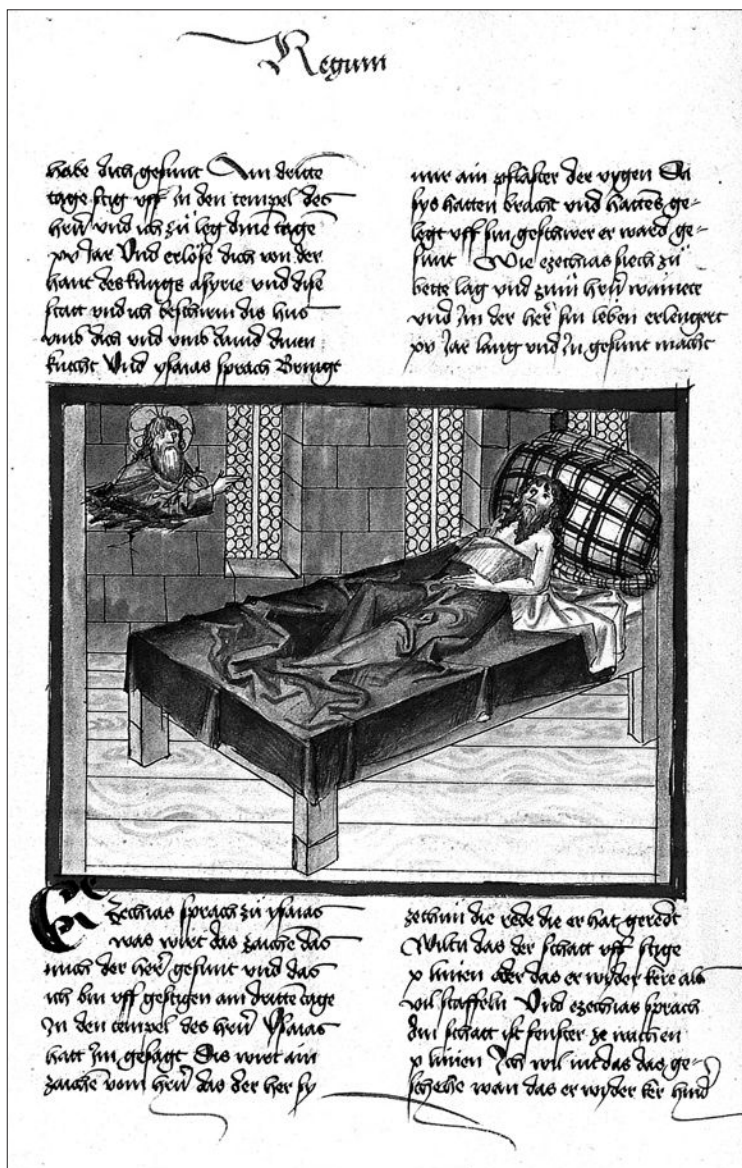 Regum
habe dich gesunt Am dritte
tage stig vff In den tempel des
herñ vnd ich zů leg dine tagen
xv Jar Vnd erlöse dich von der
hant des kungs asyrie vnd dise
statt vnd ich beschirm dis hus
vmb dich vnd vmb dauid dinen
knecht Vnd ysaias sprach Bringt
mir ain pflaster der vygen Da
sys hatten bracht vnd hattes ge-
legt vff sin geschwer er ward ge-
sunt Wie ezechias siech zů
bette lag vnd zum herñ wainete
vnd Im der her sin leben erlengert
xv Jar lang vnd In gesunt macht
Ezechias sprach zů ysaias
was wirt das zaiche das
mich der her gesunt vnd das
ich bin vff gestigen am dritte tage
In den tempel des herñ Ysaias
hatt Im gesagt Dis wirt ain
zaiche vom herñ das der her sy
die rede die er hat geredt
Wiltu das der schatt vff stige
x linien oder das er wyder kere als
vil staffeln Vnd ezechias sprach
schatt ist ze wachen
x linien Ich wil nit das das ge-
schehe wan das er wyder ker hind